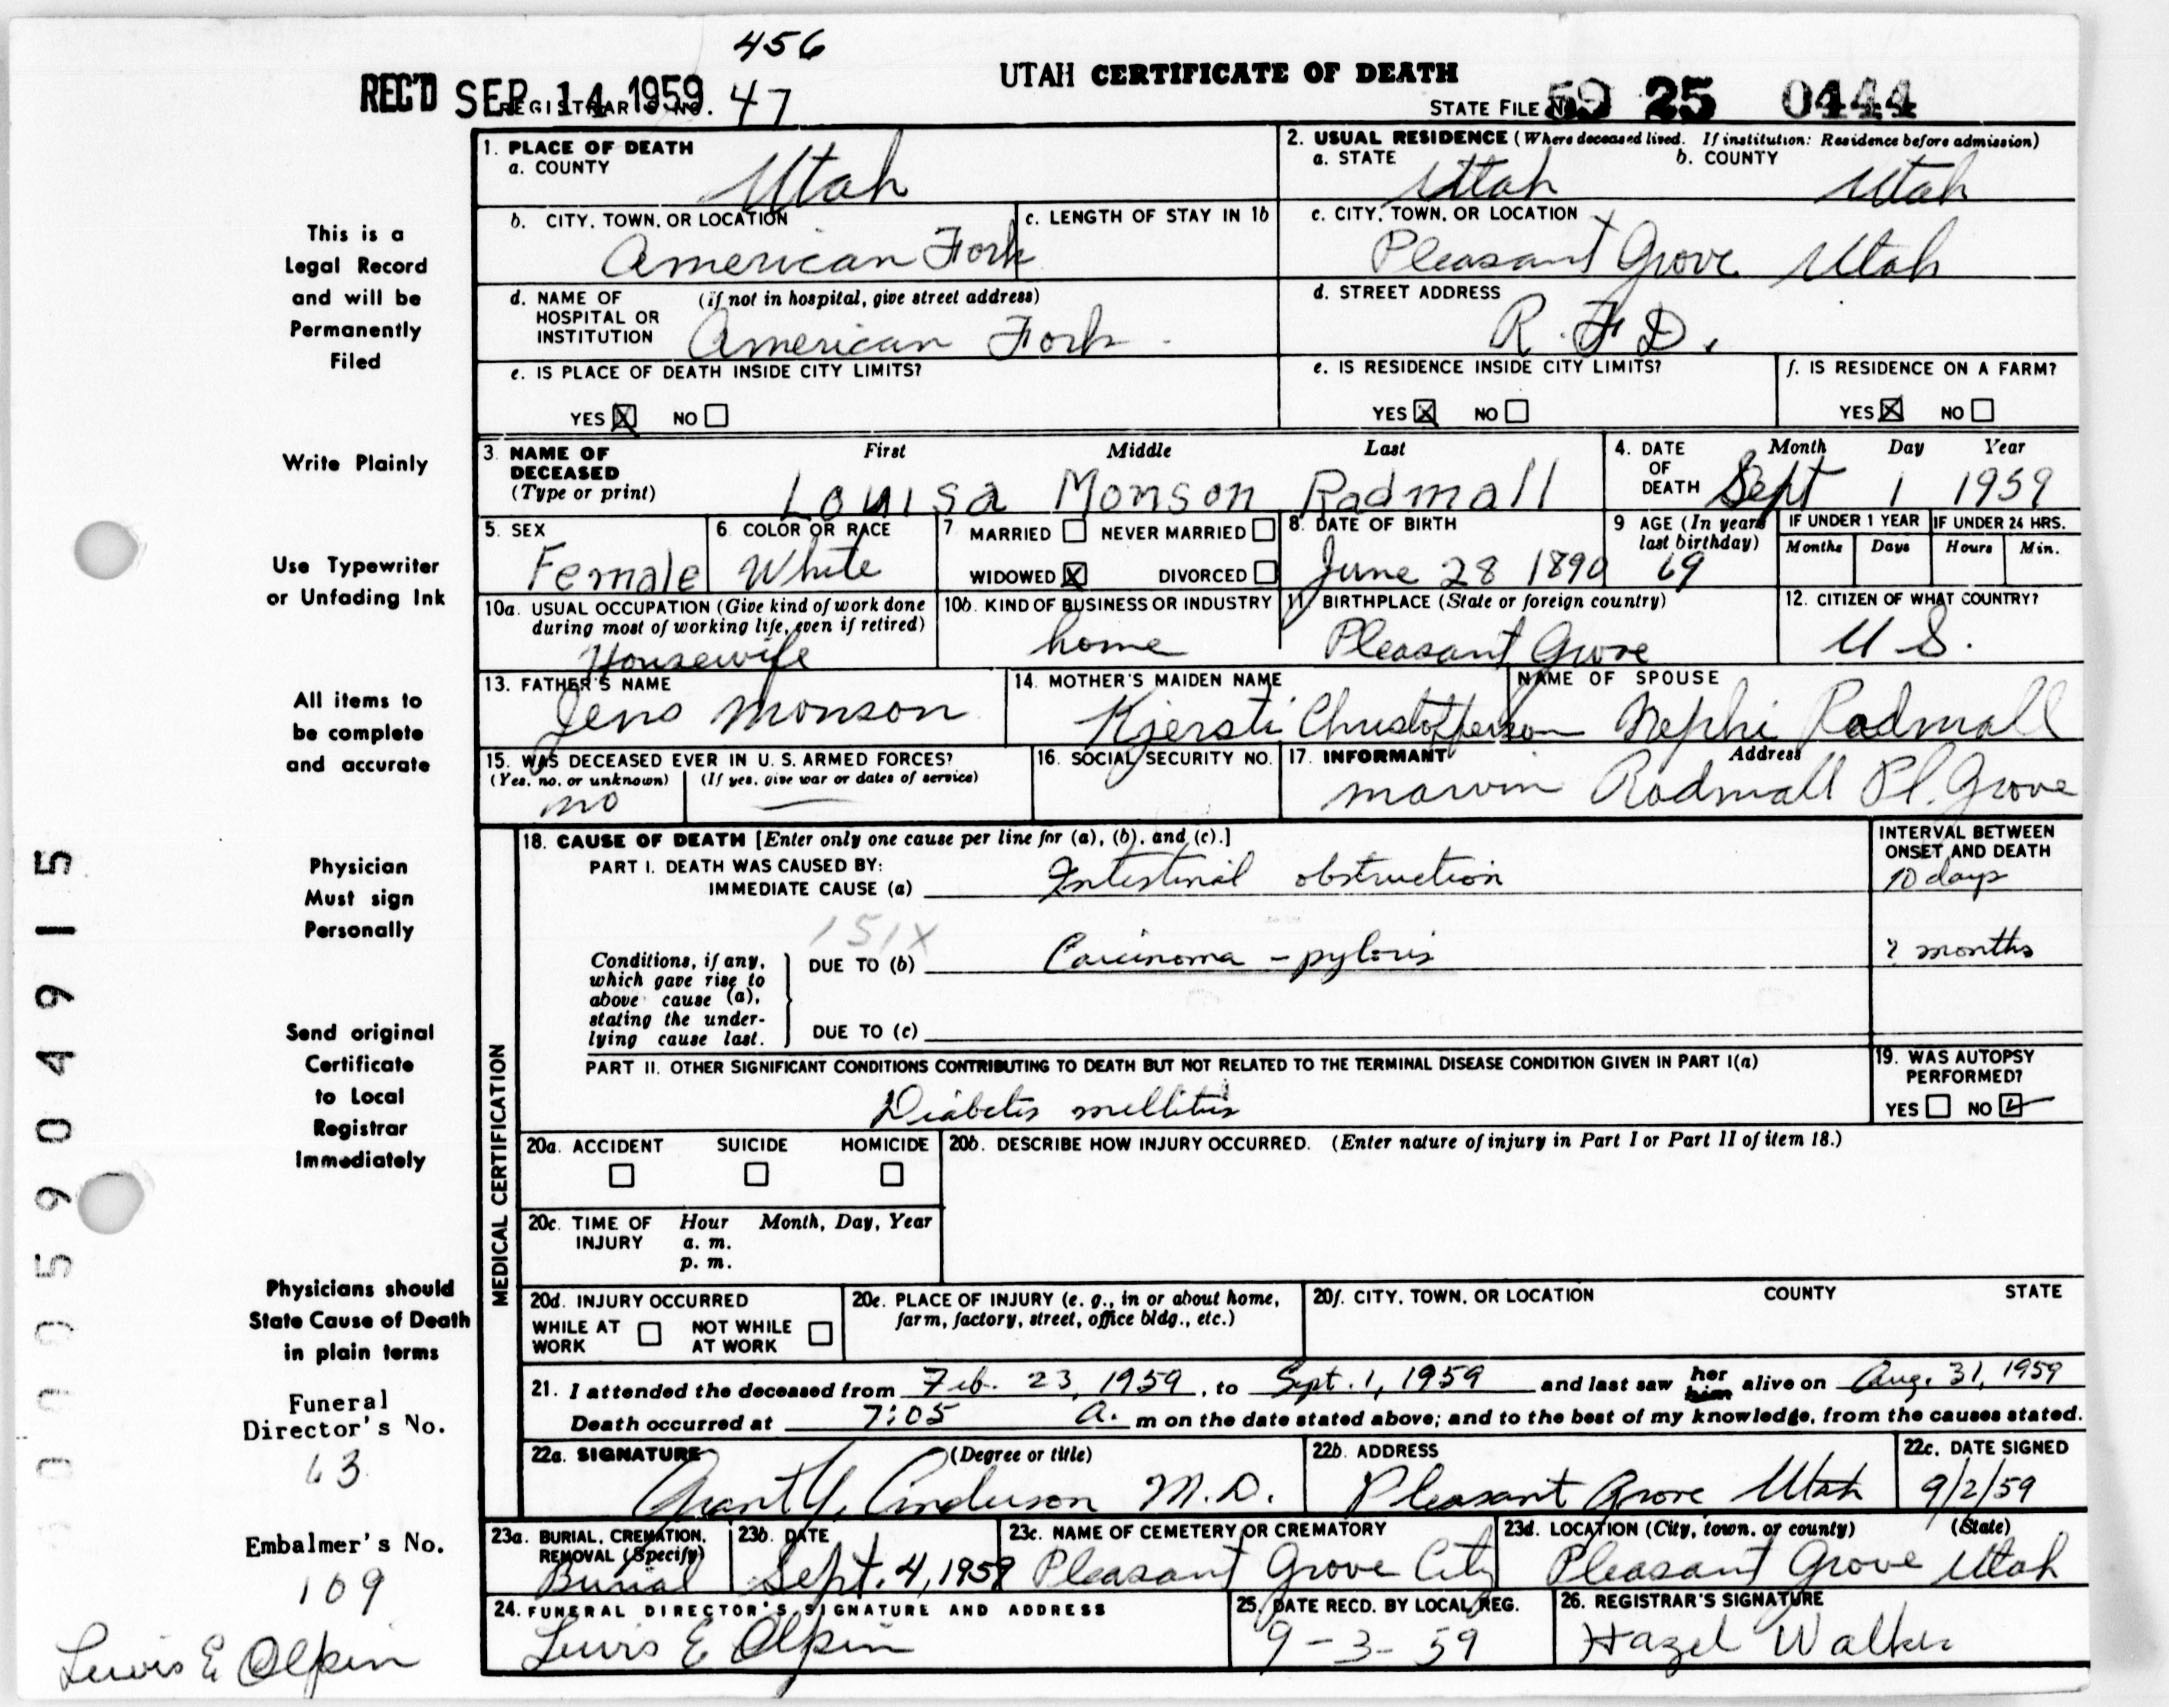 456
REC'D SEP 14 1959 REGISTRAR'S NO. 47
UTAH CERTIFICATE OF DEATH
STATE FILE NO. 59 25 0444
This is a
Legal Record
and will be
Permanently
Filed
Write Plainly
Use Typewriter
or Unfading Ink
All items to
be complete
and accurate
Physician
Must sign
Personally
Send original
Certificate
to Local
Registrar
Immediately
Physicians should
State Cause of Death
in plain terms
Funeral
Director's No.
63
Embalmer's No.
109
Lewis E Olpin
0005904915
1. PLACE OF DEATH
a. COUNTY
Utah
2. USUAL RESIDENCE (Where deceased lived. If institution: Residence before admission)
a. STATE Utah b. COUNTY Utah
b. CITY, TOWN, OR LOCATION
American Fork
c. LENGTH OF STAY IN 1b
c. CITY, TOWN, OR LOCATION
Pleasant Grove Utah
d. NAME OF HOSPITAL OR INSTITUTION (if not in hospital, give street address)
American Fork
d. STREET ADDRESS
R.F.D.
e. IS PLACE OF DEATH INSIDE CITY LIMITS?
YES X NO
e. IS RESIDENCE INSIDE CITY LIMITS?
YES X NO
f. IS RESIDENCE ON A FARM?
YES X NO
3. NAME OF DECEASED (Type or print) First Middle Last
Louisa Monson Radmall
4. DATE OF DEATH Month Day Year
Sept 1 1959
5. SEX
Female
6. COLOR OR RACE
White
7 MARRIED NEVER MARRIED
WIDOWED X DIVORCED
8. DATE OF BIRTH
June 28 1890
9 AGE (In years last birthday)
69
IF UNDER 1 YEAR
Months Days
IF UNDER 24 HRS.
Hours Min.
10a. USUAL OCCUPATION (Give kind of work done during most of working life, even if retired)
Housewife
10b. KIND OF BUSINESS OR INDUSTRY
home
11. BIRTHPLACE (State or foreign country)
Pleasant Grove
12. CITIZEN OF WHAT COUNTRY?
U S.
13. FATHER'S NAME
Jens Monson
14. MOTHER'S MAIDEN NAME
Kjersti Christofferson
NAME OF SPOUSE
Nephi Radmall
15. WAS DECEASED EVER IN U. S. ARMED FORCES?
(Yes, no, or unknown) (If yes, give war or dates of service)
no —
16. SOCIAL SECURITY NO.
17. INFORMANT Address
Marvin Radmall Pl. Grove
MEDICAL CERTIFICATION
18. CAUSE OF DEATH [Enter only one cause per line for (a), (b), and (c).]
PART I. DEATH WAS CAUSED BY:
IMMEDIATE CAUSE (a) Intestinal obstruction
INTERVAL BETWEEN ONSET AND DEATH
10 days
151X
Conditions, if any, which gave rise to above cause (a), stating the underlying cause last.
DUE TO (b) Carcinoma - pyloris
? months
DUE TO (c)
PART II. OTHER SIGNIFICANT CONDITIONS CONTRIBUTING TO DEATH BUT NOT RELATED TO THE TERMINAL DISEASE CONDITION GIVEN IN PART I(a)
Diabetes mellitus
19. WAS AUTOPSY PERFORMED?
YES NO ✓
20a. ACCIDENT SUICIDE HOMICIDE
20b. DESCRIBE HOW INJURY OCCURRED. (Enter nature of injury in Part I or Part II of item 18.)
20c. TIME OF INJURY Hour Month, Day, Year
a. m.
p. m.
20d. INJURY OCCURRED
WHILE AT WORK NOT WHILE AT WORK
20e. PLACE OF INJURY (e. g., in or about home, farm, factory, street, office bldg., etc.)
20f. CITY, TOWN, OR LOCATION COUNTY STATE
21. I attended the deceased from Feb. 23, 1959, to Sept. 1, 1959 and last saw her him alive on Aug. 31, 1959
Death occurred at 7:05 A. m on the date stated above; and to the best of my knowledge, from the causes stated.
22a. SIGNATURE (Degree or title)
Grant Y. Anderson M.D.
22b. ADDRESS
Pleasant Grove Utah
22c. DATE SIGNED
9/2/59
23a. BURIAL, CREMATION, REMOVAL (Specify)
Burial
23b. DATE
Sept. 4, 1959
23c. NAME OF CEMETERY OR CREMATORY
Pleasant Grove City
23d. LOCATION (City, town, or county) (State)
Pleasant Grove Utah
24. FUNERAL DIRECTOR'S SIGNATURE AND ADDRESS
Lewis E Olpin
25. DATE RECD. BY LOCAL REG.
9-3-59
26. REGISTRAR'S SIGNATURE
Hazel Walker